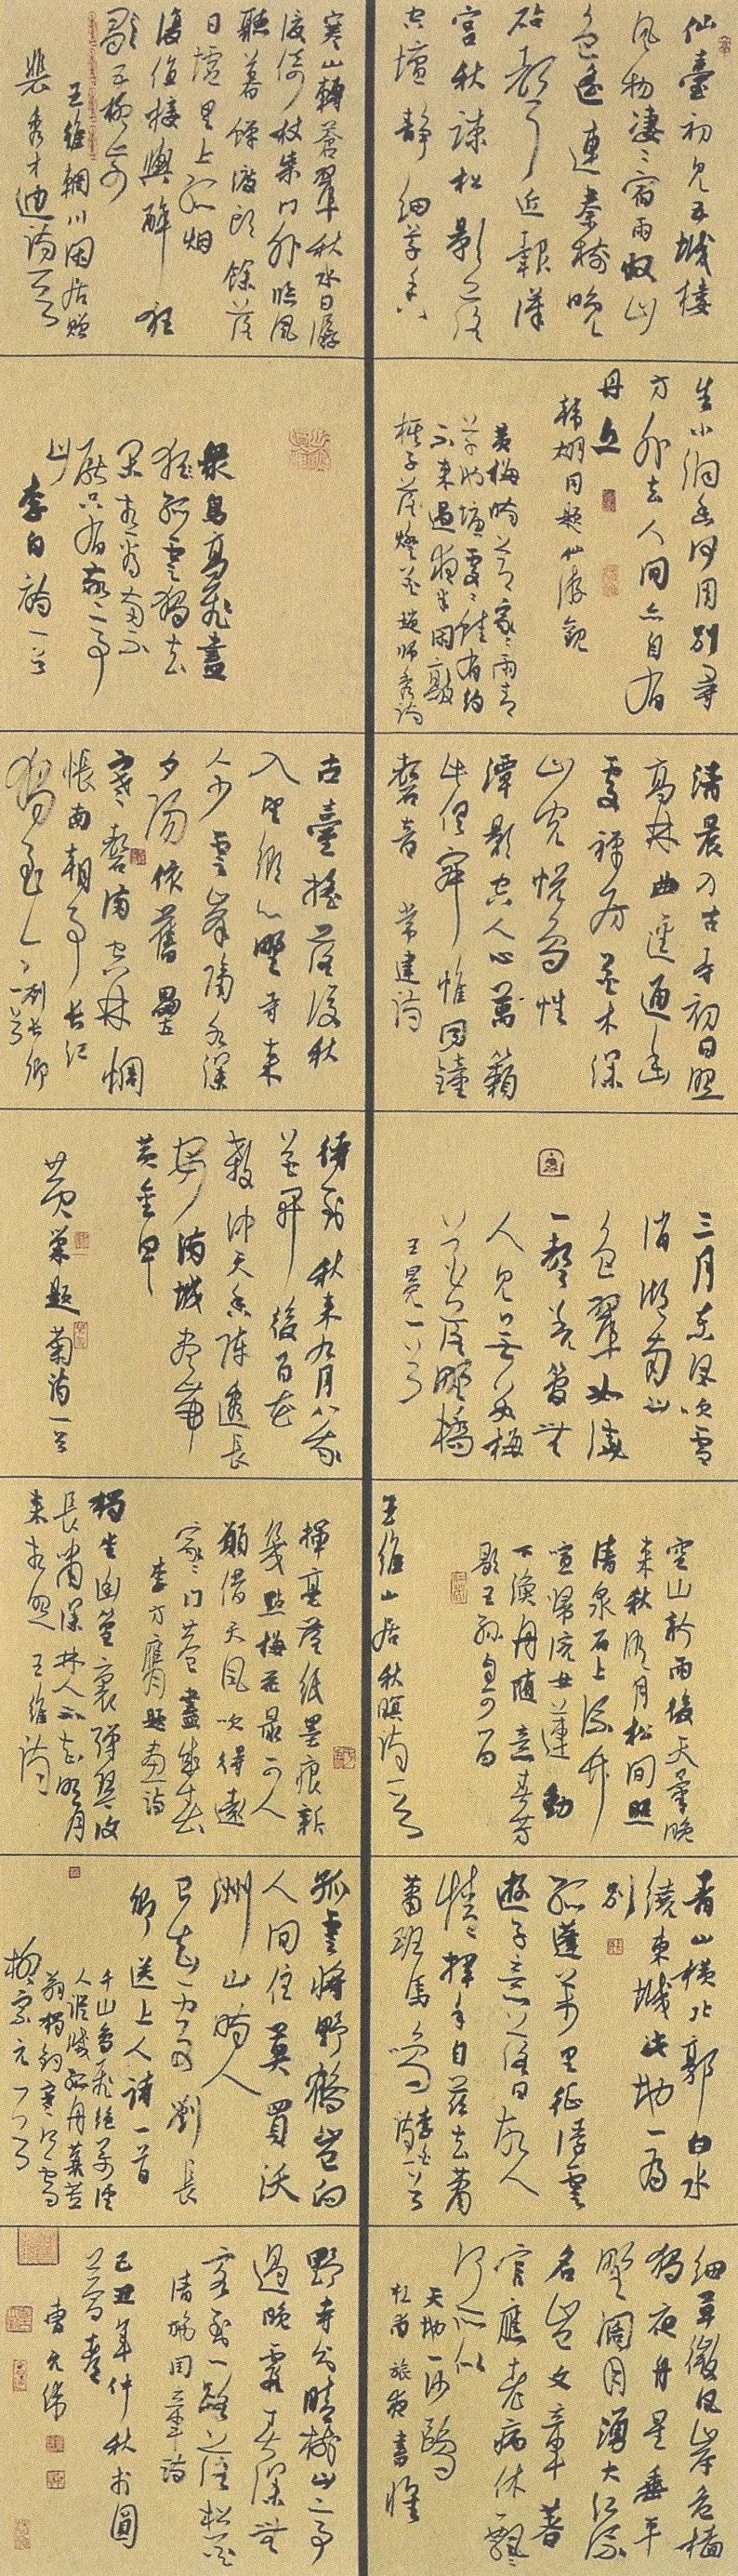 仙臺初見五城樓
風物淒淒宿雨收山
色遙連秦樹晚
砧聲近報漢
宮秋疎松影落
空壇靜細草香
生小洞幽何用別尋
方外去人間亦自有
丹丘
韓翃同題仙游觀
黃梅時節家家雨青
草池塘處處蛙有約
不來過夜半閑敲
棋子落燈花趙師秀詩
清晨入古寺初日照
高林曲徑通幽
處禪房花木深
山光悅鳥性
潭影空人心萬籟
此俱寂惟聞鐘
磬音 常建詩
三月東風吹雪
消湖南山
色翠如澆
一聲羌管無
人見無數梅
花落野橋
王冕一首
空山新雨後天氣晚
來秋明月松間照
清泉石上流竹
喧歸浣女蓮動
下漁舟隨意春芳
歇王孫自可留
王維山居秋暝詩一首
青山橫北郭白水
繞東城此地一為
別
孤蓬萬里征浮雲
游子意落日故人
情揮手自茲去蕭
蕭班馬鳴 李白詩一首
細草微風岸危檣
獨夜舟星垂平
野闊月湧大江流
名豈文章著
官應老病休飄飄
何所似
天地一沙鷗
杜甫旅夜書懷
寒山轉蒼翠秋水日潺
湲倚杖柴門外臨風
聽暮蟬渡頭餘落
日墟里上孤烟
復值接輿醉狂
歌五柳前
王維輞川閑居贈
裴秀才迪詩一首
眾鳥高飛盡
孤雲獨去
閑相看兩不
厭只有敬亭
山
李白詩一首
古臺搖落後秋
入望鄉心野寺來
人少雲峯隔水深
夕陽依舊壘
寒磬滿空林惆
悵南朝事長江
獨至今 劉長卿
一首
待到秋來九月八我
花開後百花
殺沖天香陣透長
安滿城盡帶
黃金甲
黃巢題菊詩一首
揮毫落紙墨痕新
幾點梅花最可人
願借天風吹得遠
家家門巷盡成春
李方膺題畫詩
獨坐幽篁裏彈琴復
長嘯深林人不知明月
來相照 王維詩
孤雲將野鶴豈向
人間住莫買沃
洲山時人
已知處 劉長
卿送上人詩一首
千山鳥飛絕萬徑
人蹤滅孤舟蓑笠
翁獨釣寒江雪
柳宗元一首
野寺分晴樹山亭
過晚霞春深無
客到一路落松花
清施閏章詩
己丑年仲秋於圓
曹元偉